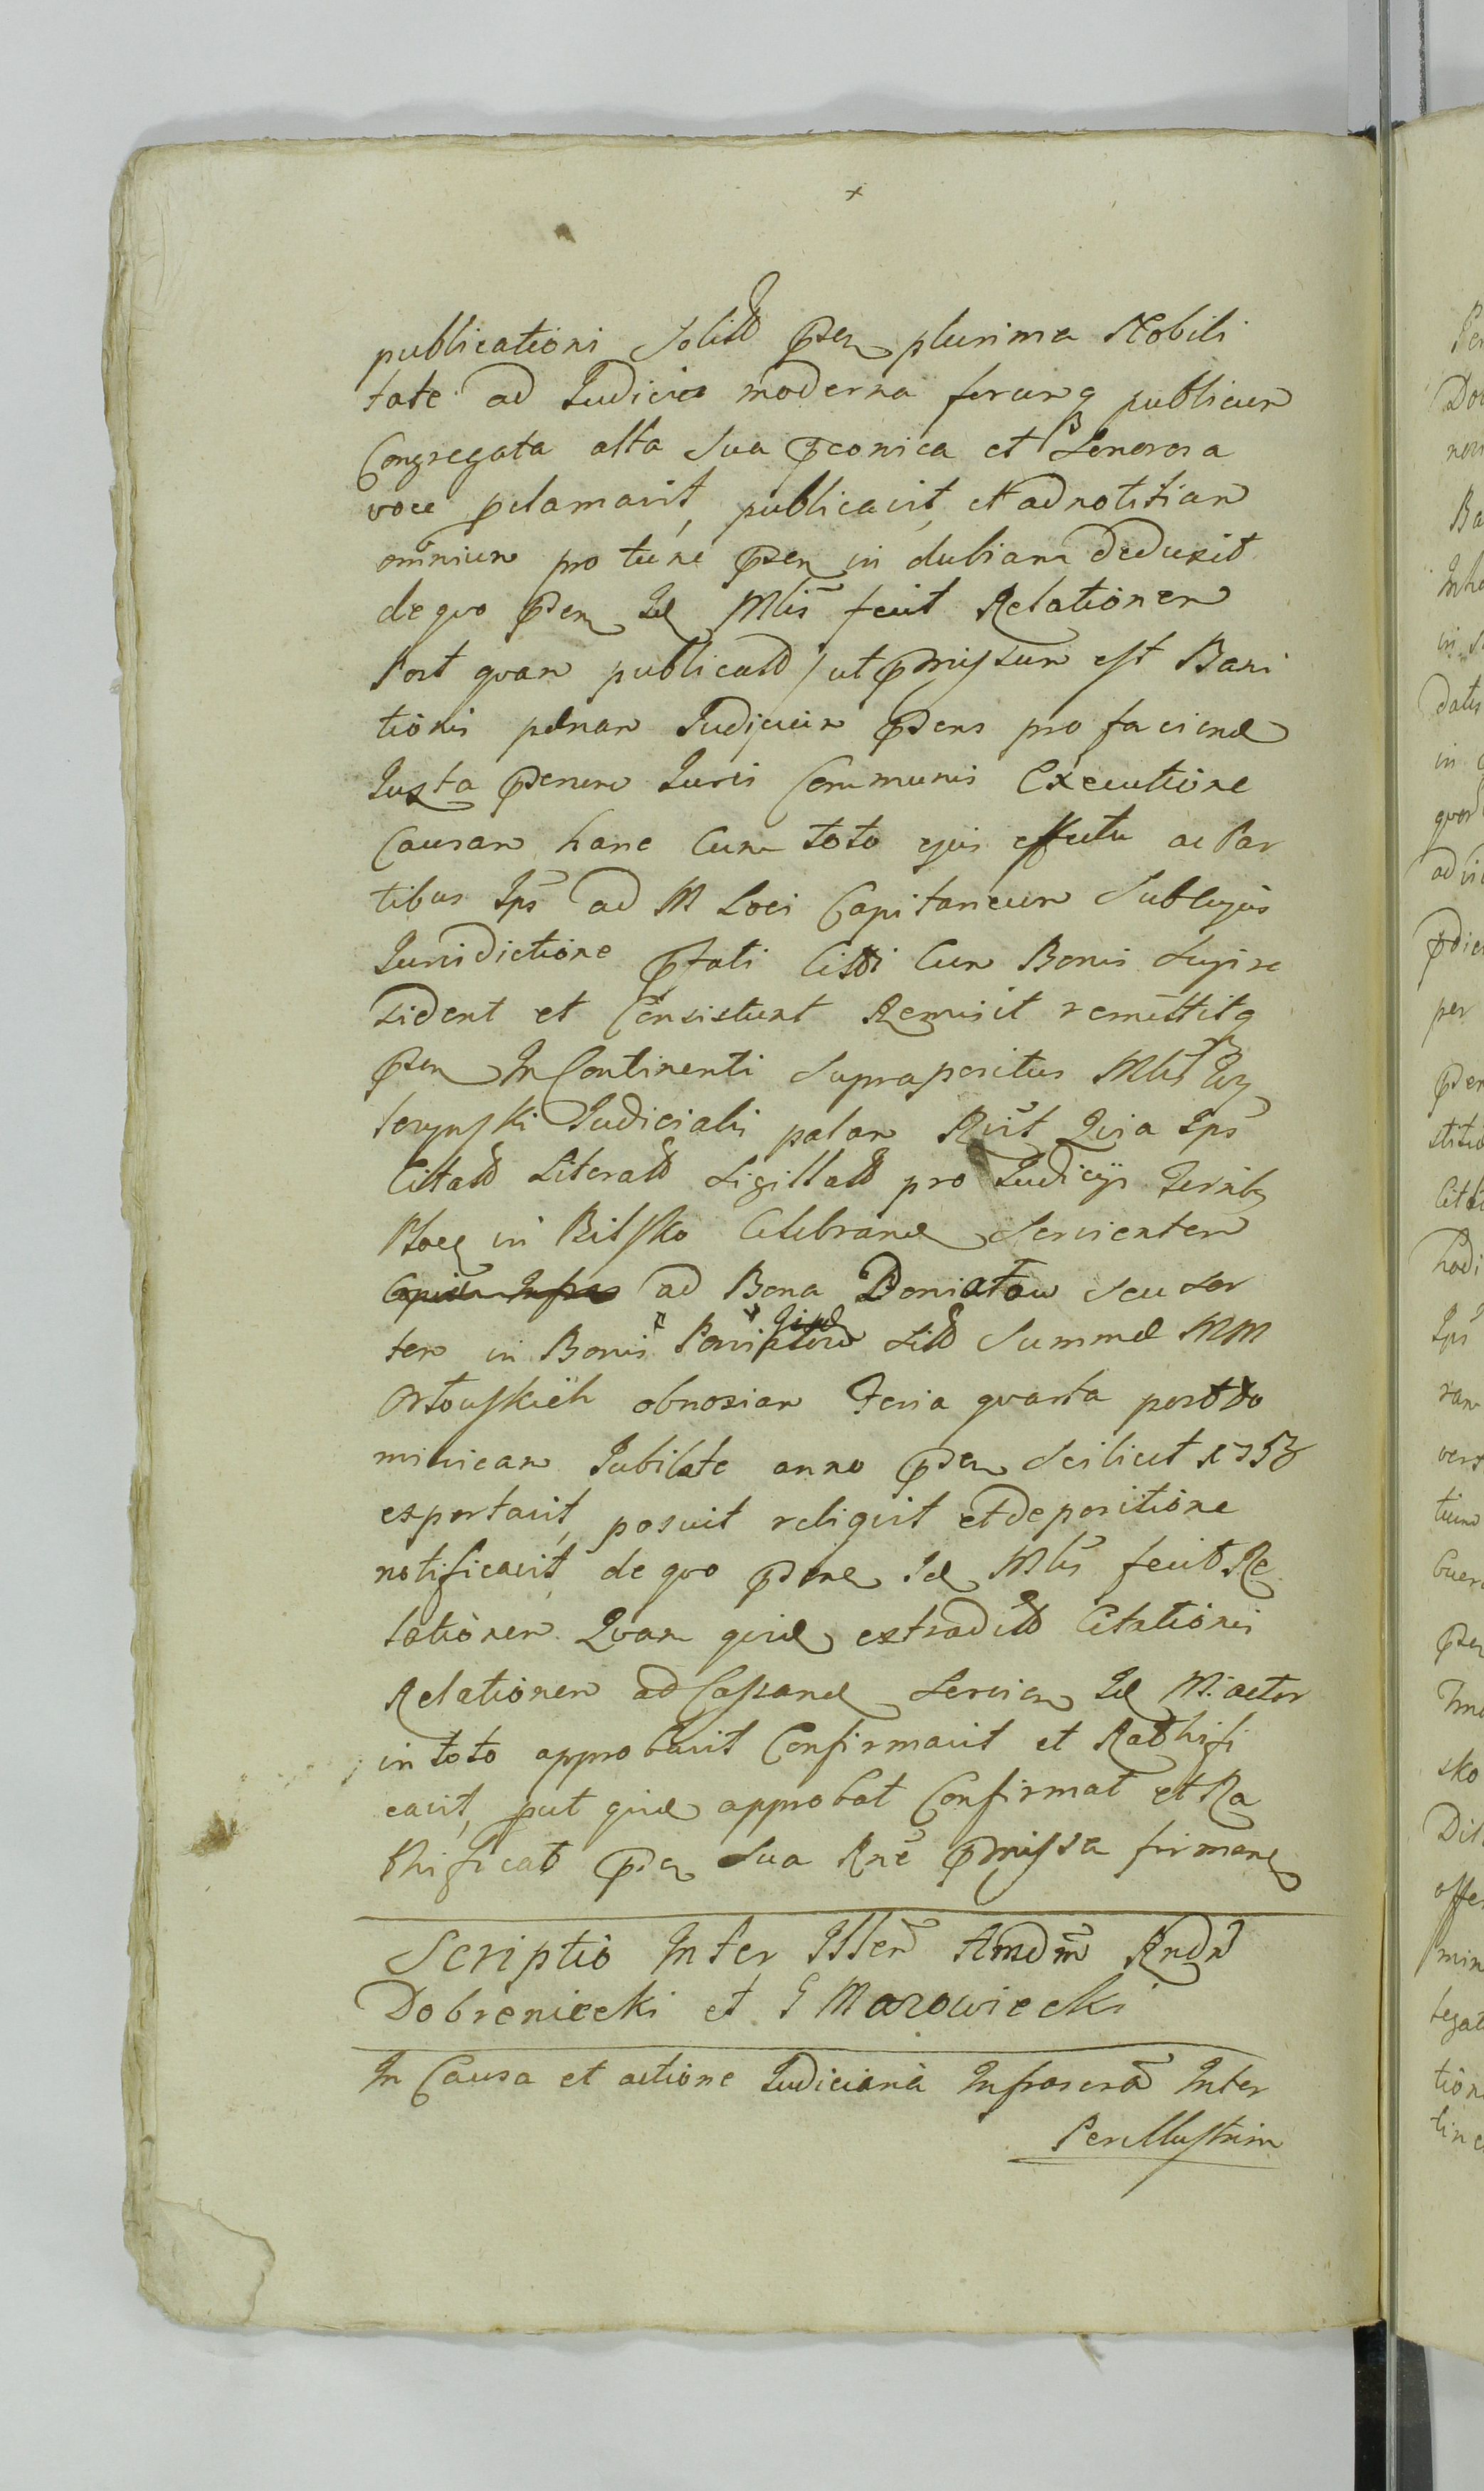 publicationi solitt psen plurima Nobili
tate ad Judicia moderna forumq publicum
Congregata alta sua pconica et Sonorosa
voce pclamavit, publicavit, et ad notitiam
omnium pro tunc psen in dubiam deduxit
de quo psen Id Mlis fecit Relationem
Post quam publicatt ut pmissum est Bani
tionis penam Judicium psens pro faciend
Juxta psentem Juris Communis Executione
Causam hanc Cum toto ejus effectu ac Par
tibus Ips ad M Loci Capitaneum Sub cujus
Jurisdictione pfati Citti Cum Bonis Suis re
sident et Consistunt Remisit remittitq
psen In Continenti Suprapositus Mlis
Judicialis palam Rivit Quia Ips
Cittatt Literatt Sigillatt pro Judicijs Terrib
Ploc in Bilsko Celebrand Servientem
ad Bona Poniatow seu sor
tem in Bonis Poniatow Sitt Summe MM
obnoxiam Feria quarta post do
minicam Jubilate anno psen Scilicet
exportavit, posuit reliquit et de positione
notificavit, de quo psens Id Mlis fecit Re
lationem Quam quid extraditt Citationis
Relationem ad Cassand Servien Id M. actor
in toto approbavit Confirmavit et Rathifi
cavit, put quid approbat Confirmat et Ra
thificat psen Sua Rne pmissa firmand
Scriptio Inter Illen Amdm Rndm
Dobreniecki et G Mazowiecki
In Causa et actione Judiciaria Infrascra Inter
Perillustrim